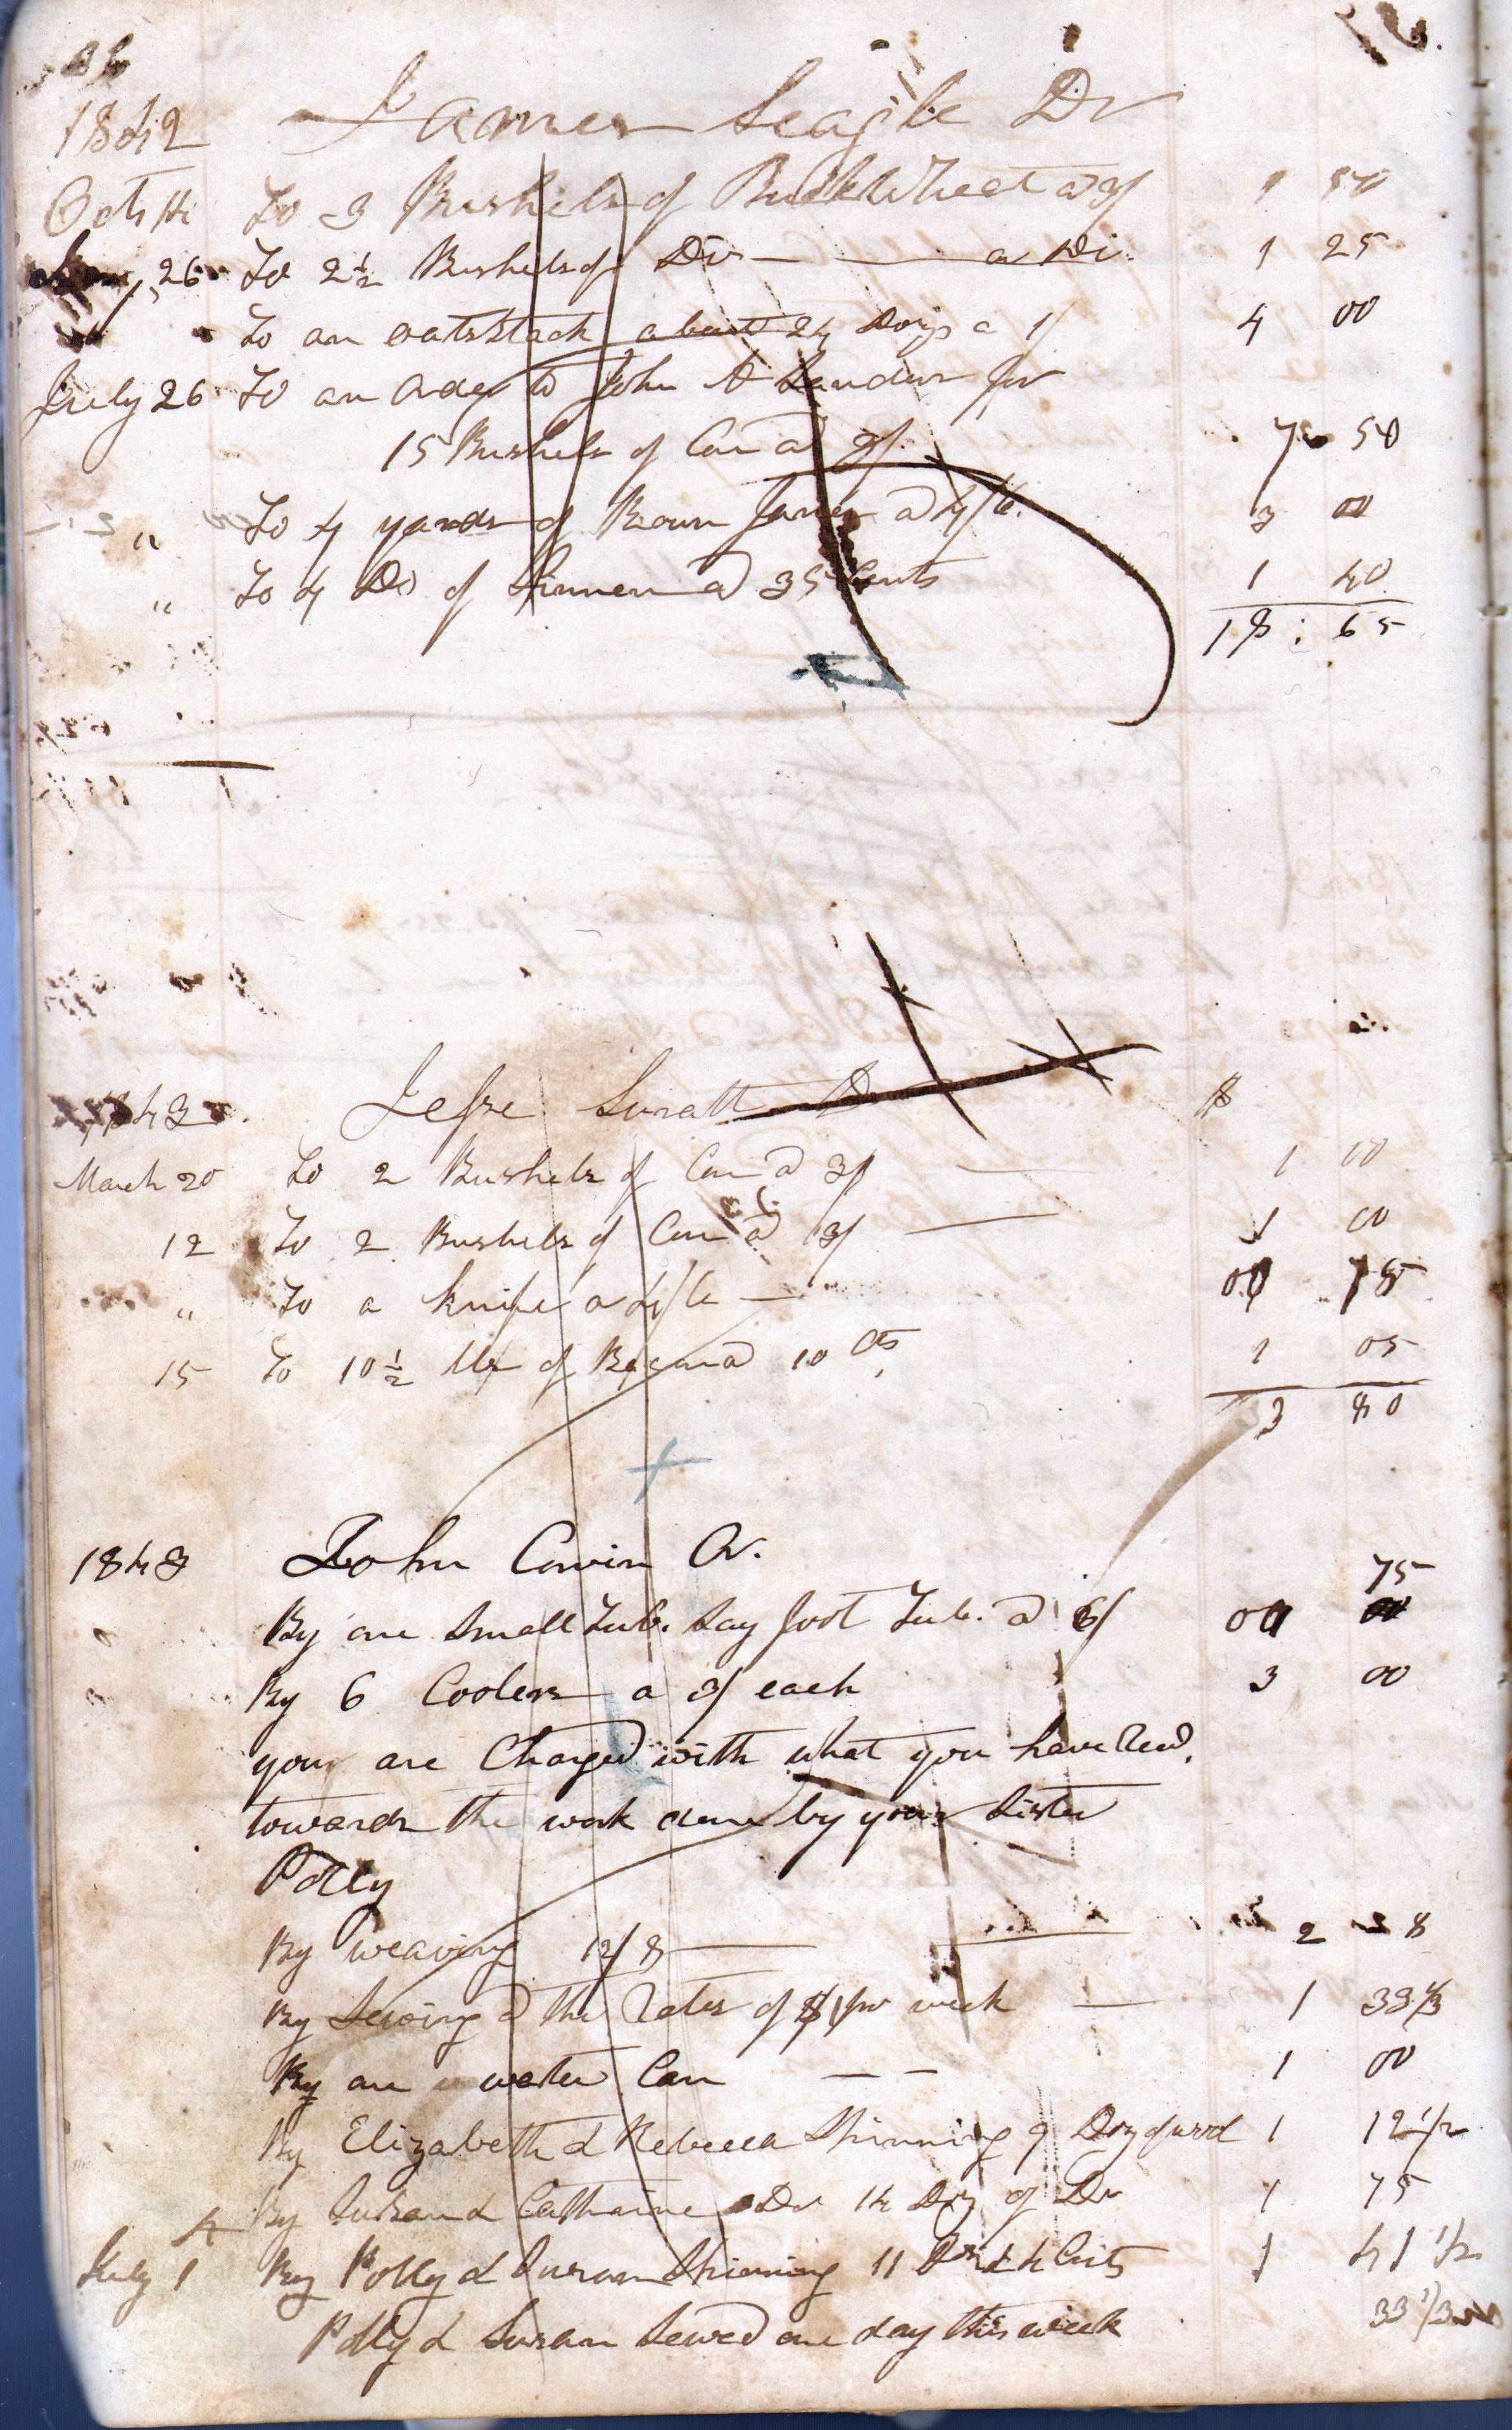 36
1842 James Seagle Dr
Oct 14 To 3 Bushels of BuckWheat a 3/ 1 50
26 To 2½ Bushels of Do — a Di. 1 25
To an oats Stack about 24 Dozs a 1/ 4 00
July 26 To an Order to John A Sanders for
15 Bushels of Corn a 3/ 7 50
" To 4 yards of Brown Janes a 4/6. 3 00
" To 4 Do of Linnen a 35 Cents 1 40
18 : 65
1843 Jesse Suratt Dr $
March 20 To 2 Bushels of Corn a 3/ — 1 00
12 To 2 Bushels of Corn a 3/ — 1 00
" To a knife a 4/6 — 00 75
15 To 10½ lbs of Bacon a 10 cts, 1 05
3 80
1843 John Corvin Cr.
75
By one Small Tub. Say foot Tub. a 6/ 00
By 6 Coolers a 3/ each 3 00
you are Charged with what you have Recd.
towards the work done by your Sister
Polly
By weaving 12/8 — 2 28
By Sewing a the Rates of $1 pr week — 1 33⅓
By one water Can — — 1 00
By Elizabeth & Rebecca Spinning 9 Doz 1 12 1/2
By Susan & Catharine Do 14 Doz of Do 1 75
July 1 By Polly & Susan Spinning 11 Doz & 4 Cuts 1 41 1/2
Polly & Susan Sewed one day this week 33 1/3